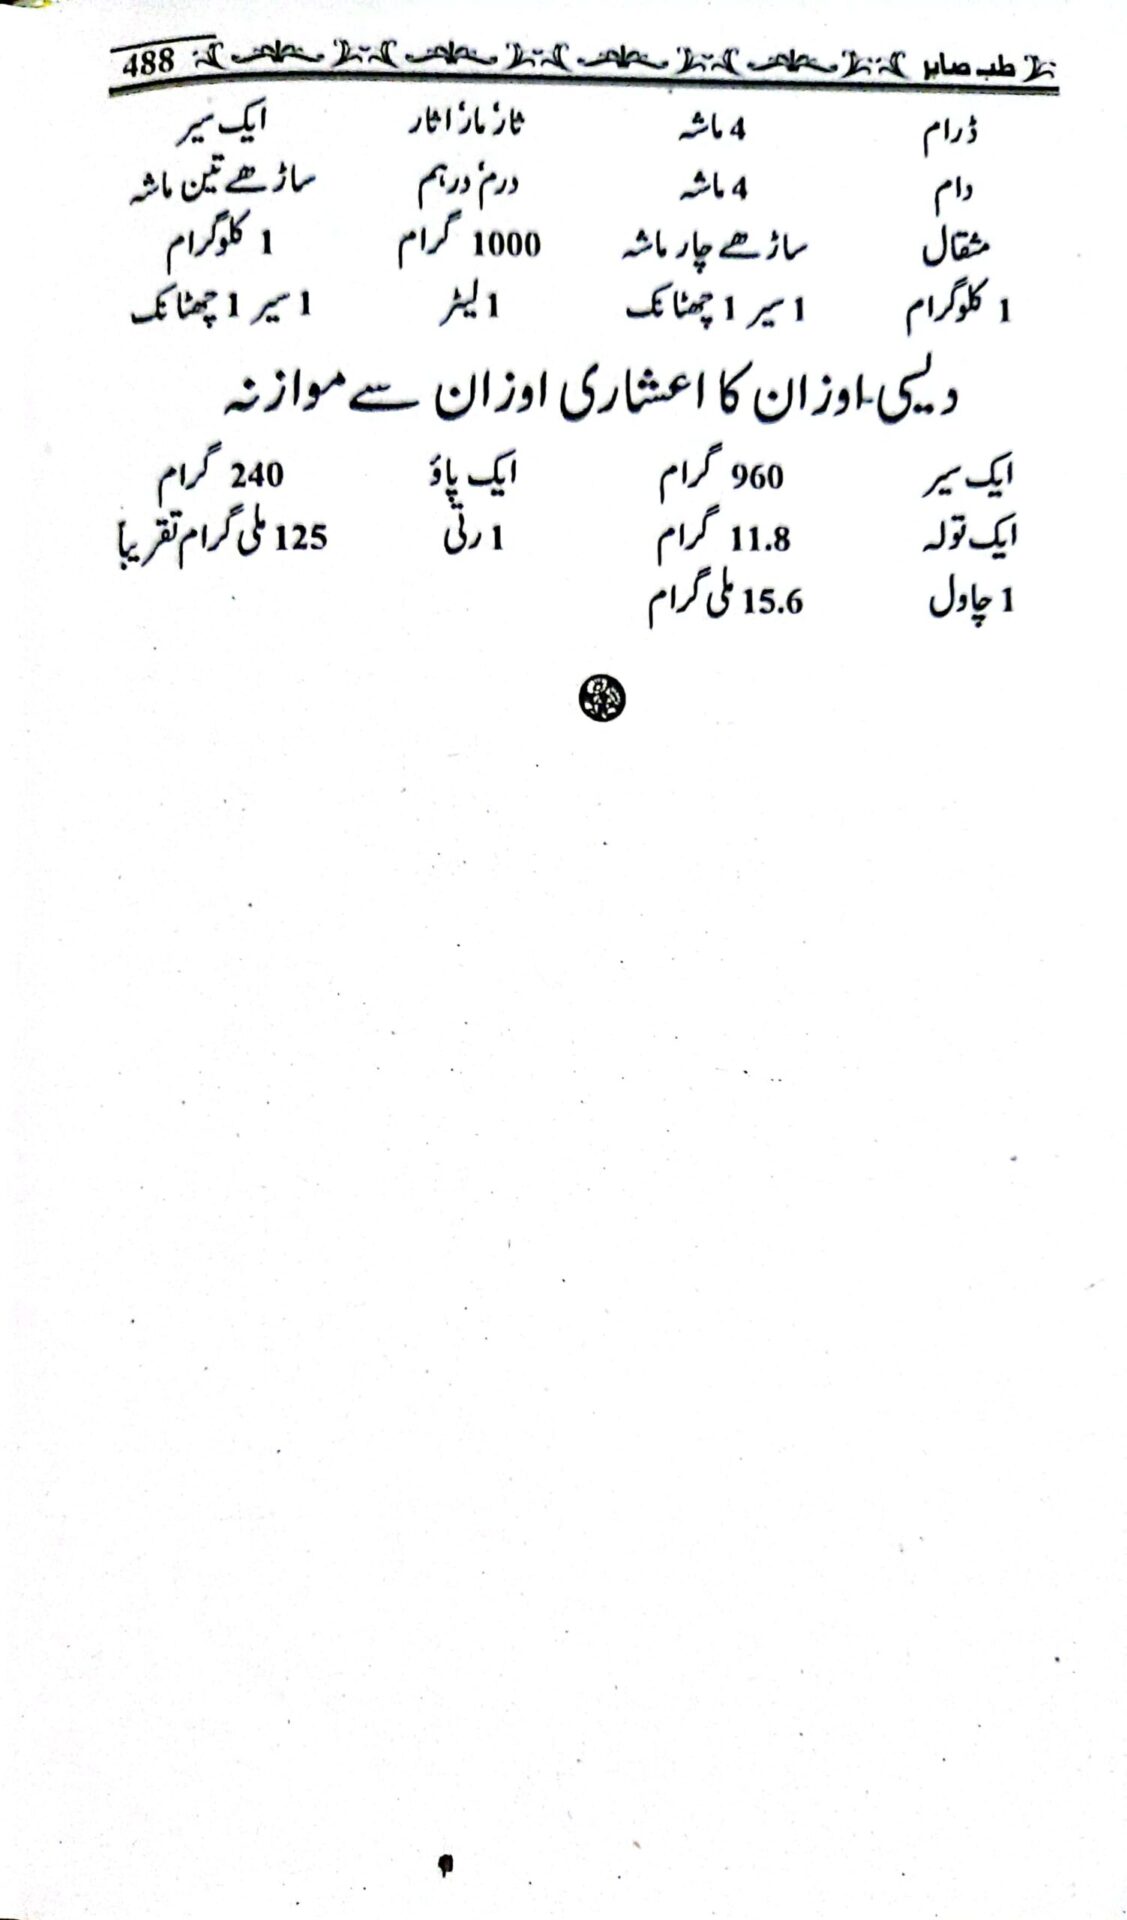 طب صابر 488
ڈرام 4 ماشہ ثار' مار' اثار ایک سیر
دام 4 ماشہ درم' درہم ساڑھے تین ماشہ
مثقال ساڑھے چار ماشہ 1000 گرام 1 کلوگرام
1 کلوگرام 1 سیر 1 چھٹانک 1 لیٹر 1 سیر 1 چھٹانک
دیسی اوزان کا اعشاری اوزان سے موازنہ
ایک سیر 960 گرام ایک پاؤ 240 گرام
ایک تولہ 11.8 گرام 1 رتی 125 ملی گرام تقریباً
1 چاول 15.6 ملی گرام